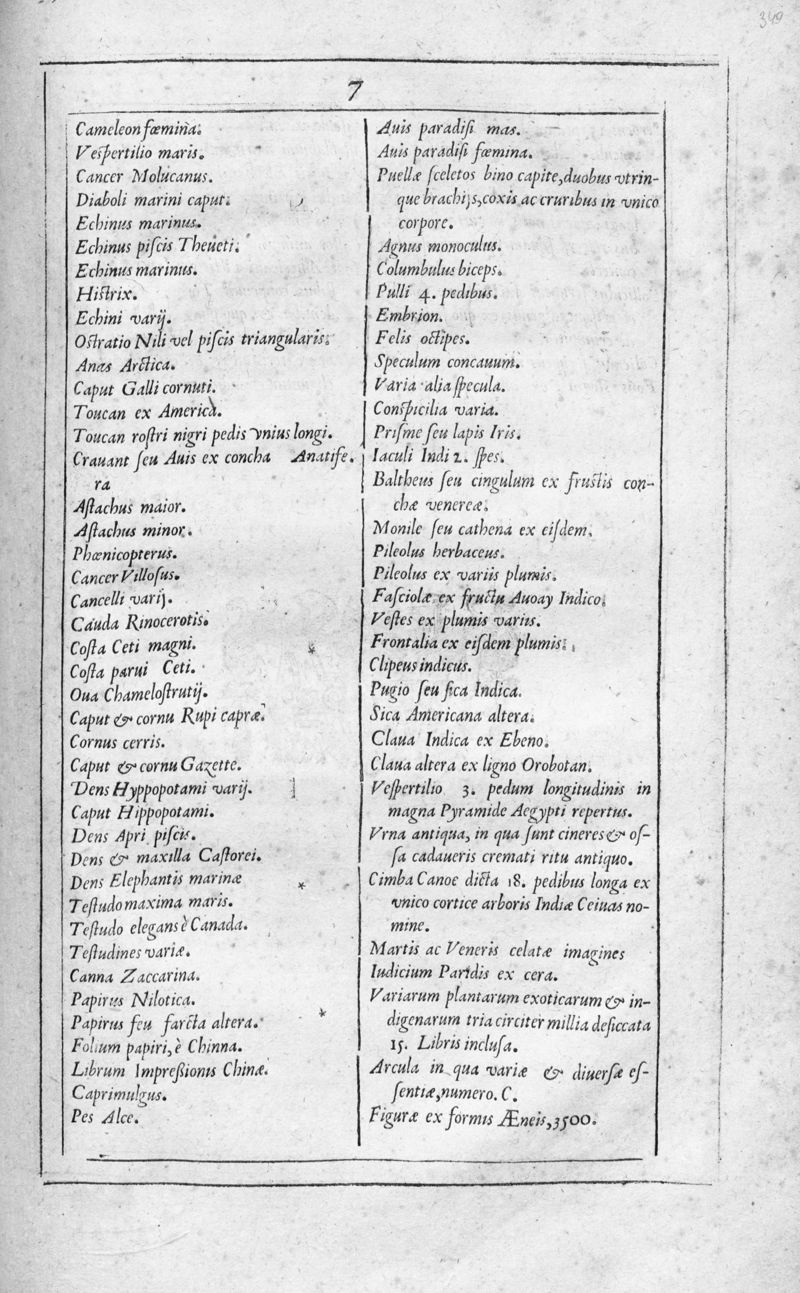 349
7
Cameleon fœmina.
Veſpertilio maris.
Cancer Molucanus.
Diaboli marini caput.
Echinus marinus.
Echinus piſcis Theueti.
Echinus marinus.
Hiſtrix.
Echini varij.
Oſtratio Nili vel piſcis triangularis.
Anas Arctica.
Caput Galli cornuti.
Toucan ex America.
Toucan roſtri nigri pedis vnius longi.
Crauant ſeu Auis ex concha Anatife.
ra
Aſtachus maior.
Aſtachus minor.
Phœnicopterus.
Cancer Villoſus.
Cancelli varij.
Cauda Rinocerotis.
Coſta Ceti magni.
Coſta parui Ceti.
Oua Chameloſtrutij.
Caput & cornu Rupi capræ.
Cornus cerris.
Caput & cornu Gazette.
Dens Hyppopotami varij.
Caput Hippopotami.
Dens Apri piſcis.
Dens & maxilla Caſtorei.
Dens Elephantis marinæ
Teſtudo maxima maris.
Teſtudo elegans è Canada.
Teſtudines variæ.
Canna Zaccarina.
Papirus Nilotica.
Papirus ſeu farcta altera.
Folium papiri, è Chinna.
Librum Impreßionis Chinæ.
Caprimulgus.
Pes Alce.
Auis paradiſi mas.
Auis paradiſi fœmina.
Puellæ ſceletos bino capite, duobus vtrin-
que brachijs, coxis ac cruribus in vnico
corpore.
Agnus monoculus.
Columbulus biceps.
Pulli 4. pedibus.
Embrion.
Felis octipes.
Speculum concauum.
Varia alia ſpecula.
Conſpicilia varia.
Priſme ſeu lapis Iris.
Iaculi Indi 2. ſpes.
Baltheus ſeu cingulum ex fruſtis con-
chæ venereæ.
Monile ſeu cathena ex eiſdem.
Pileolus herbaceus.
Pileolus ex variis plumis.
Faſciolæ ex fructu Auoay Indico.
Veſtes ex plumis variis.
Frontalia ex eiſdem plumis.
Clipeus indicus.
Pugio ſeu ſica Indica.
Sica Americana altera.
Claua Indica ex Ebeno.
Claua altera ex ligno Orobotan.
Veſpertilio 3. pedum longitudinis in
magna Pyramide Aegypti repertus.
Vrna antiqua, in qua ſunt cineres & oſ-
ſa cadaueris cremati ritu antiquo.
Cimba Canoe dicta 18. pedibus longa ex
vnico cortice arboris Indiæ Ceiuas no-
mine.
Martis ac Veneris celatæ imagines
Iudicium Paridis ex cera.
Variarum plantarum exoticarum & in-
digenarum tria circiter millia deſiccata
15. Libris incluſa.
Arcula in qua variæ & diuerſæ eſ-
ſentiæ, numero. C.
Figuræ ex formis Æneis, 3500.